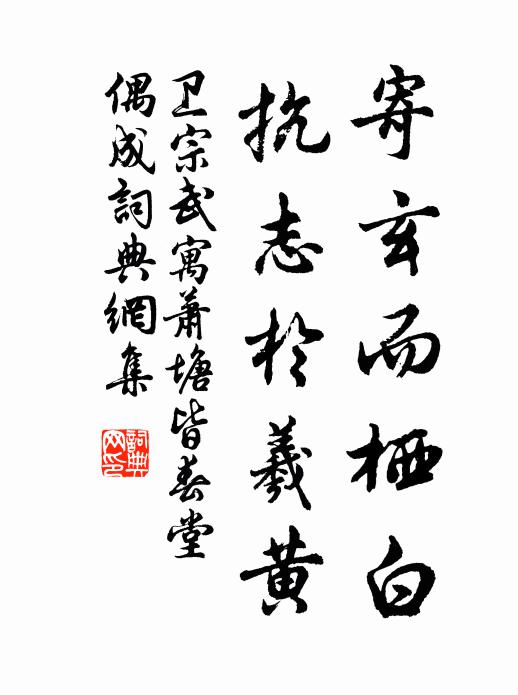 寄玄而栖白
抗志於羲黄
卫宗武寓萧塘皆春堂
偶成詞典網集
詞典
网印